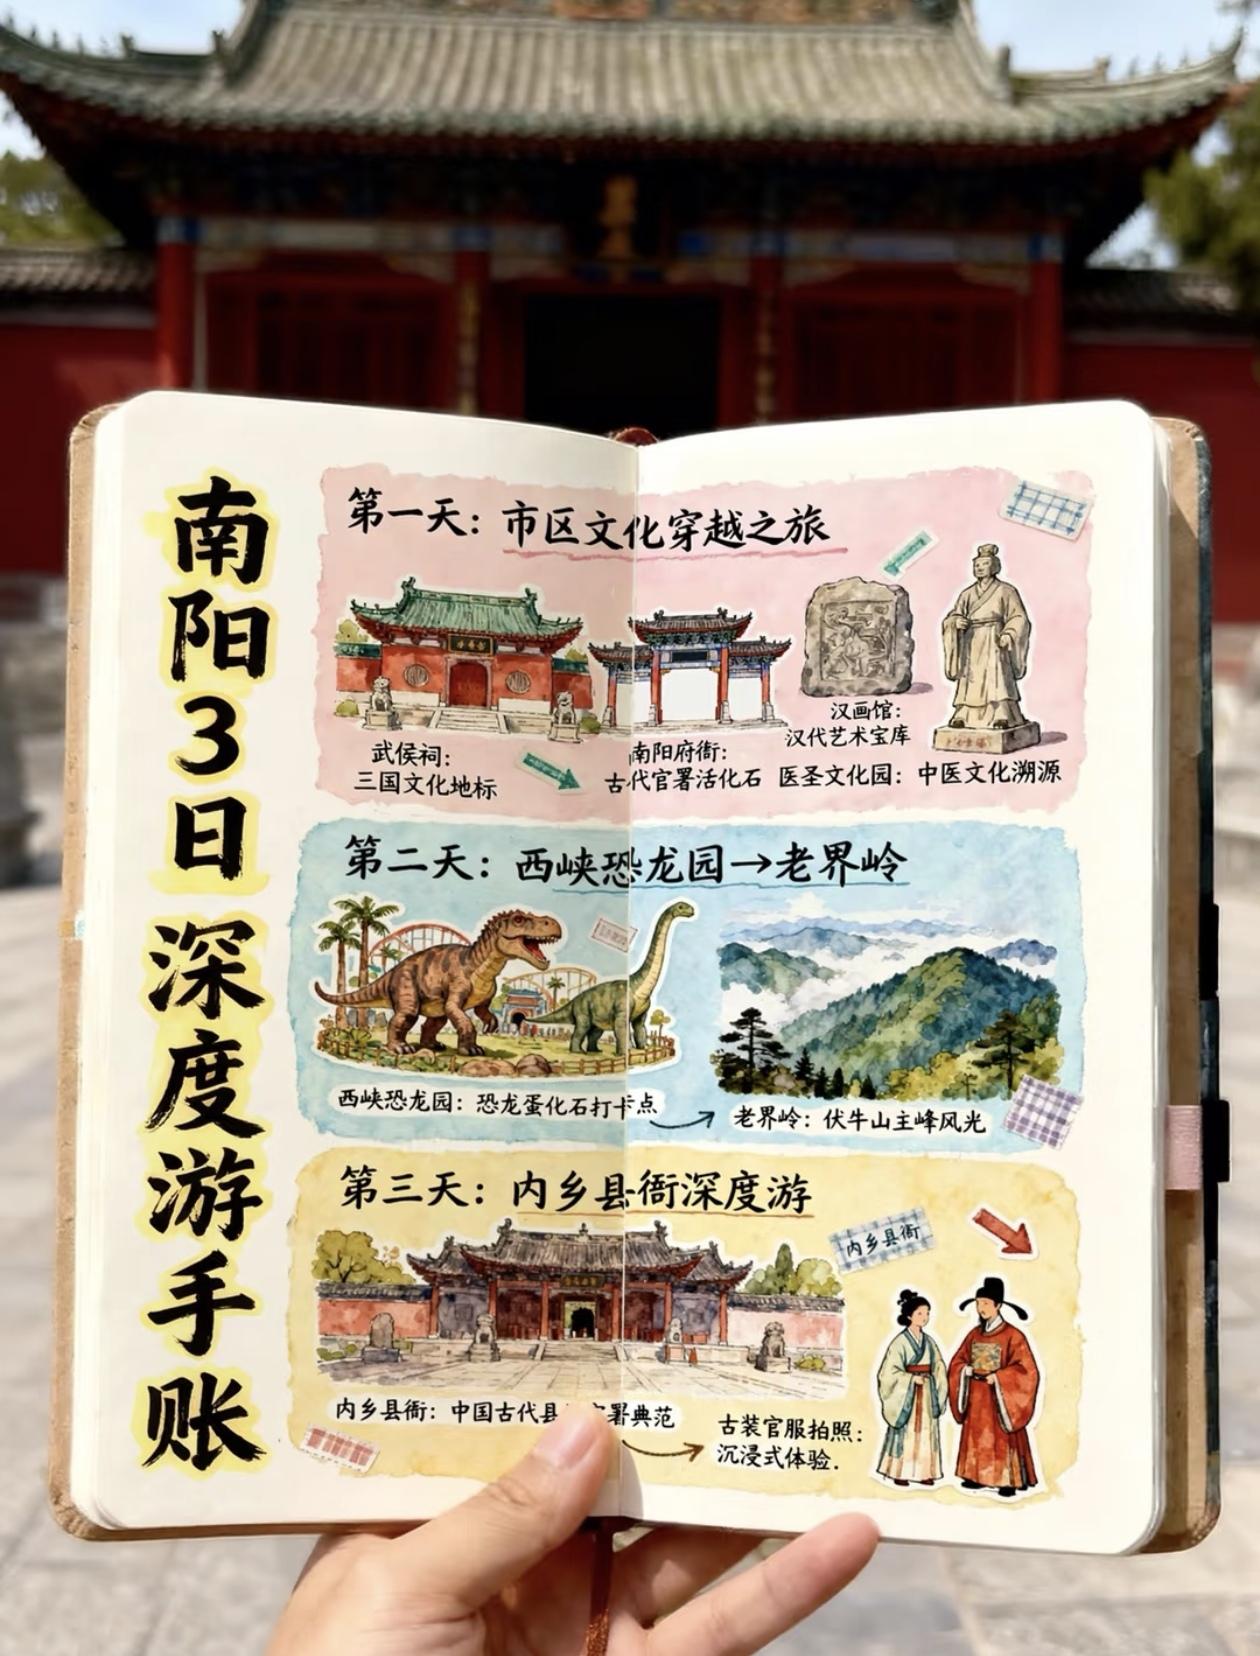 南阳3日深度游手账
第一天：市区文化穿越之旅
武侯祠：
三国文化地标
南阳府衙：
古代官署活化石
汉画馆：
汉代艺术宝库
医圣文化园：中医文化溯源
第二天：西峡恐龙园→老界岭
西峡恐龙园：恐龙蛋化石打卡点
老界岭：伏牛山主峰风光
第三天：内乡县衙深度游
内乡县衙
内乡县衙：中国古代县
署典范
古装官服拍照：
沉浸式体验.